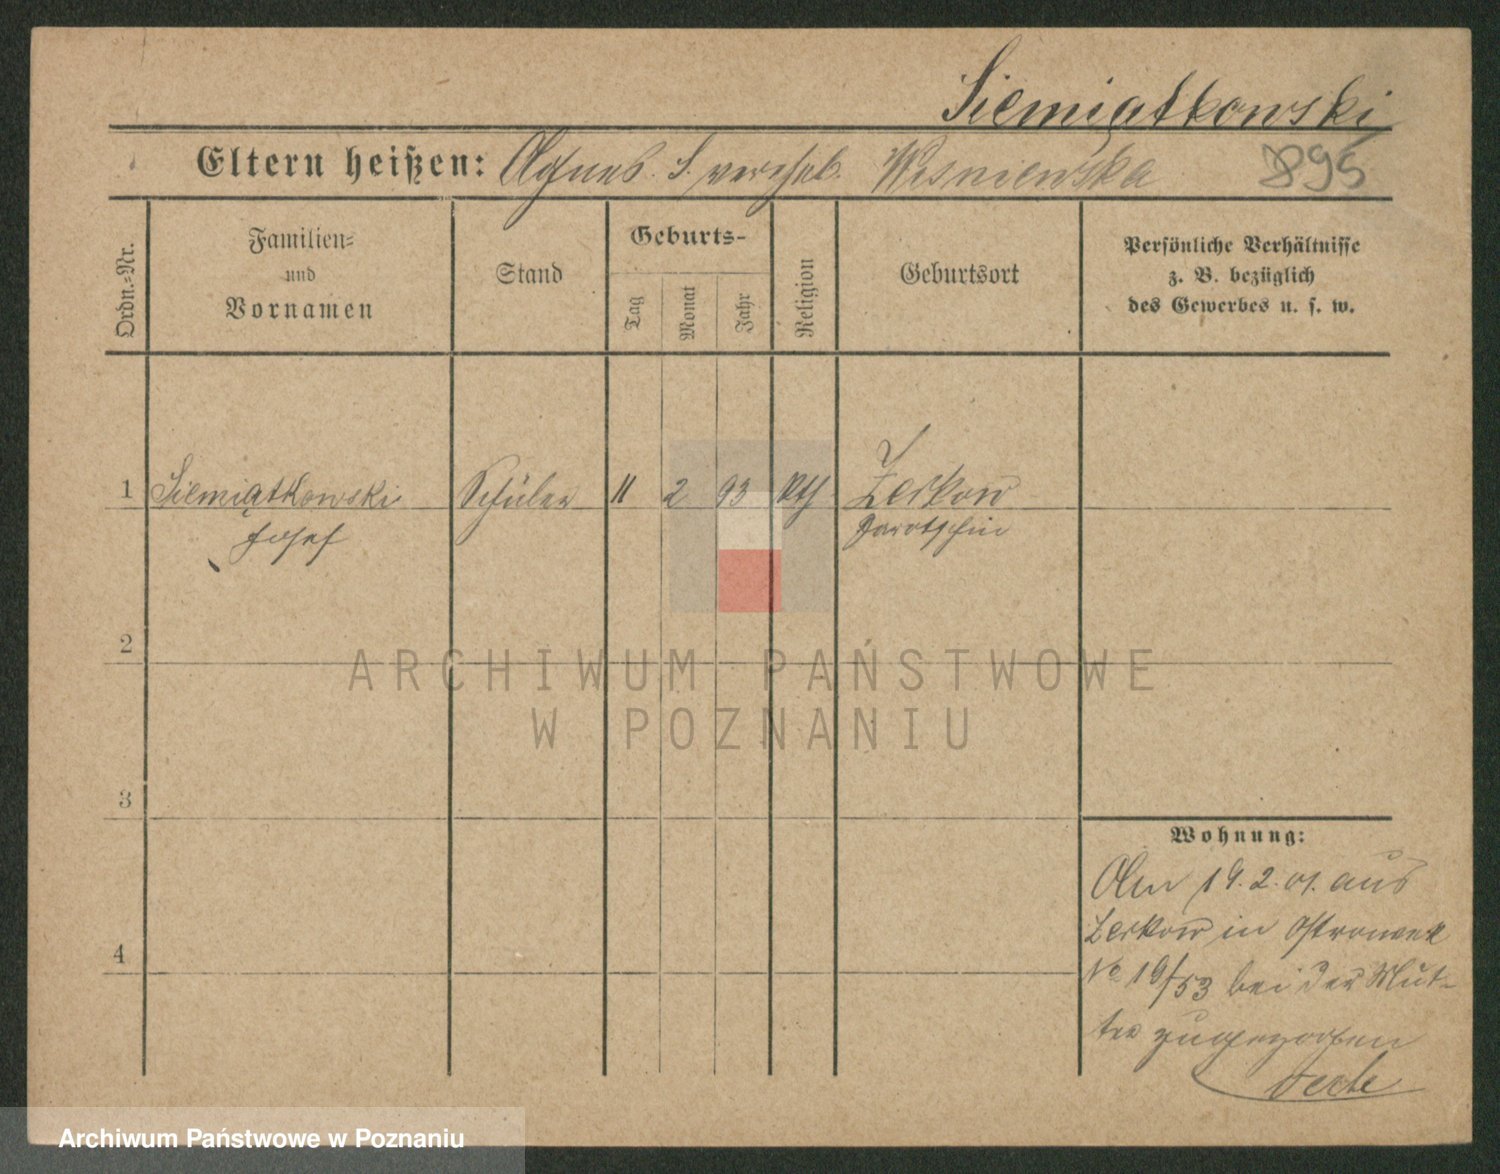 Siemiątkowski
Eltern heißen: Agnes S. verehel. Wisniewska 895
Ordn.-Nr.
Familien-
und
Vornamen
Stand
Geburts-
Tag
Monat
Jahr
Religion
Geburtsort
Persönliche Verhältnisse
z. B. bezüglich
des Gewerbes u. s. w.
1 Siemiątkowski Schüler 11 2 93 kth Zerkow
Josef Jarotschin
2
ARCHIWUM PAŃSTWOWE
W POZNANIU
3
Wohnung:
Am 19.2.01. aus
Zerkow in Ostrowek
No 19/53 bei der Mut-
ter zugezogen
4
Archiwum Państwowe w Poznaniu